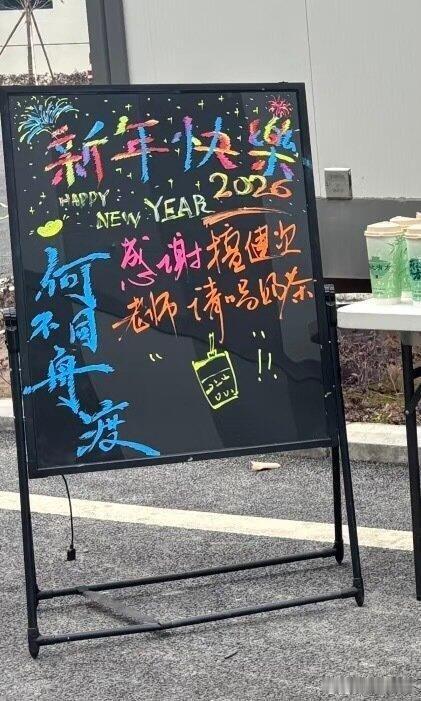 新年快樂
HAPPY
NEW YEAR 2026
感谢檀健次
老师请喝奶茶
何不同舟渡